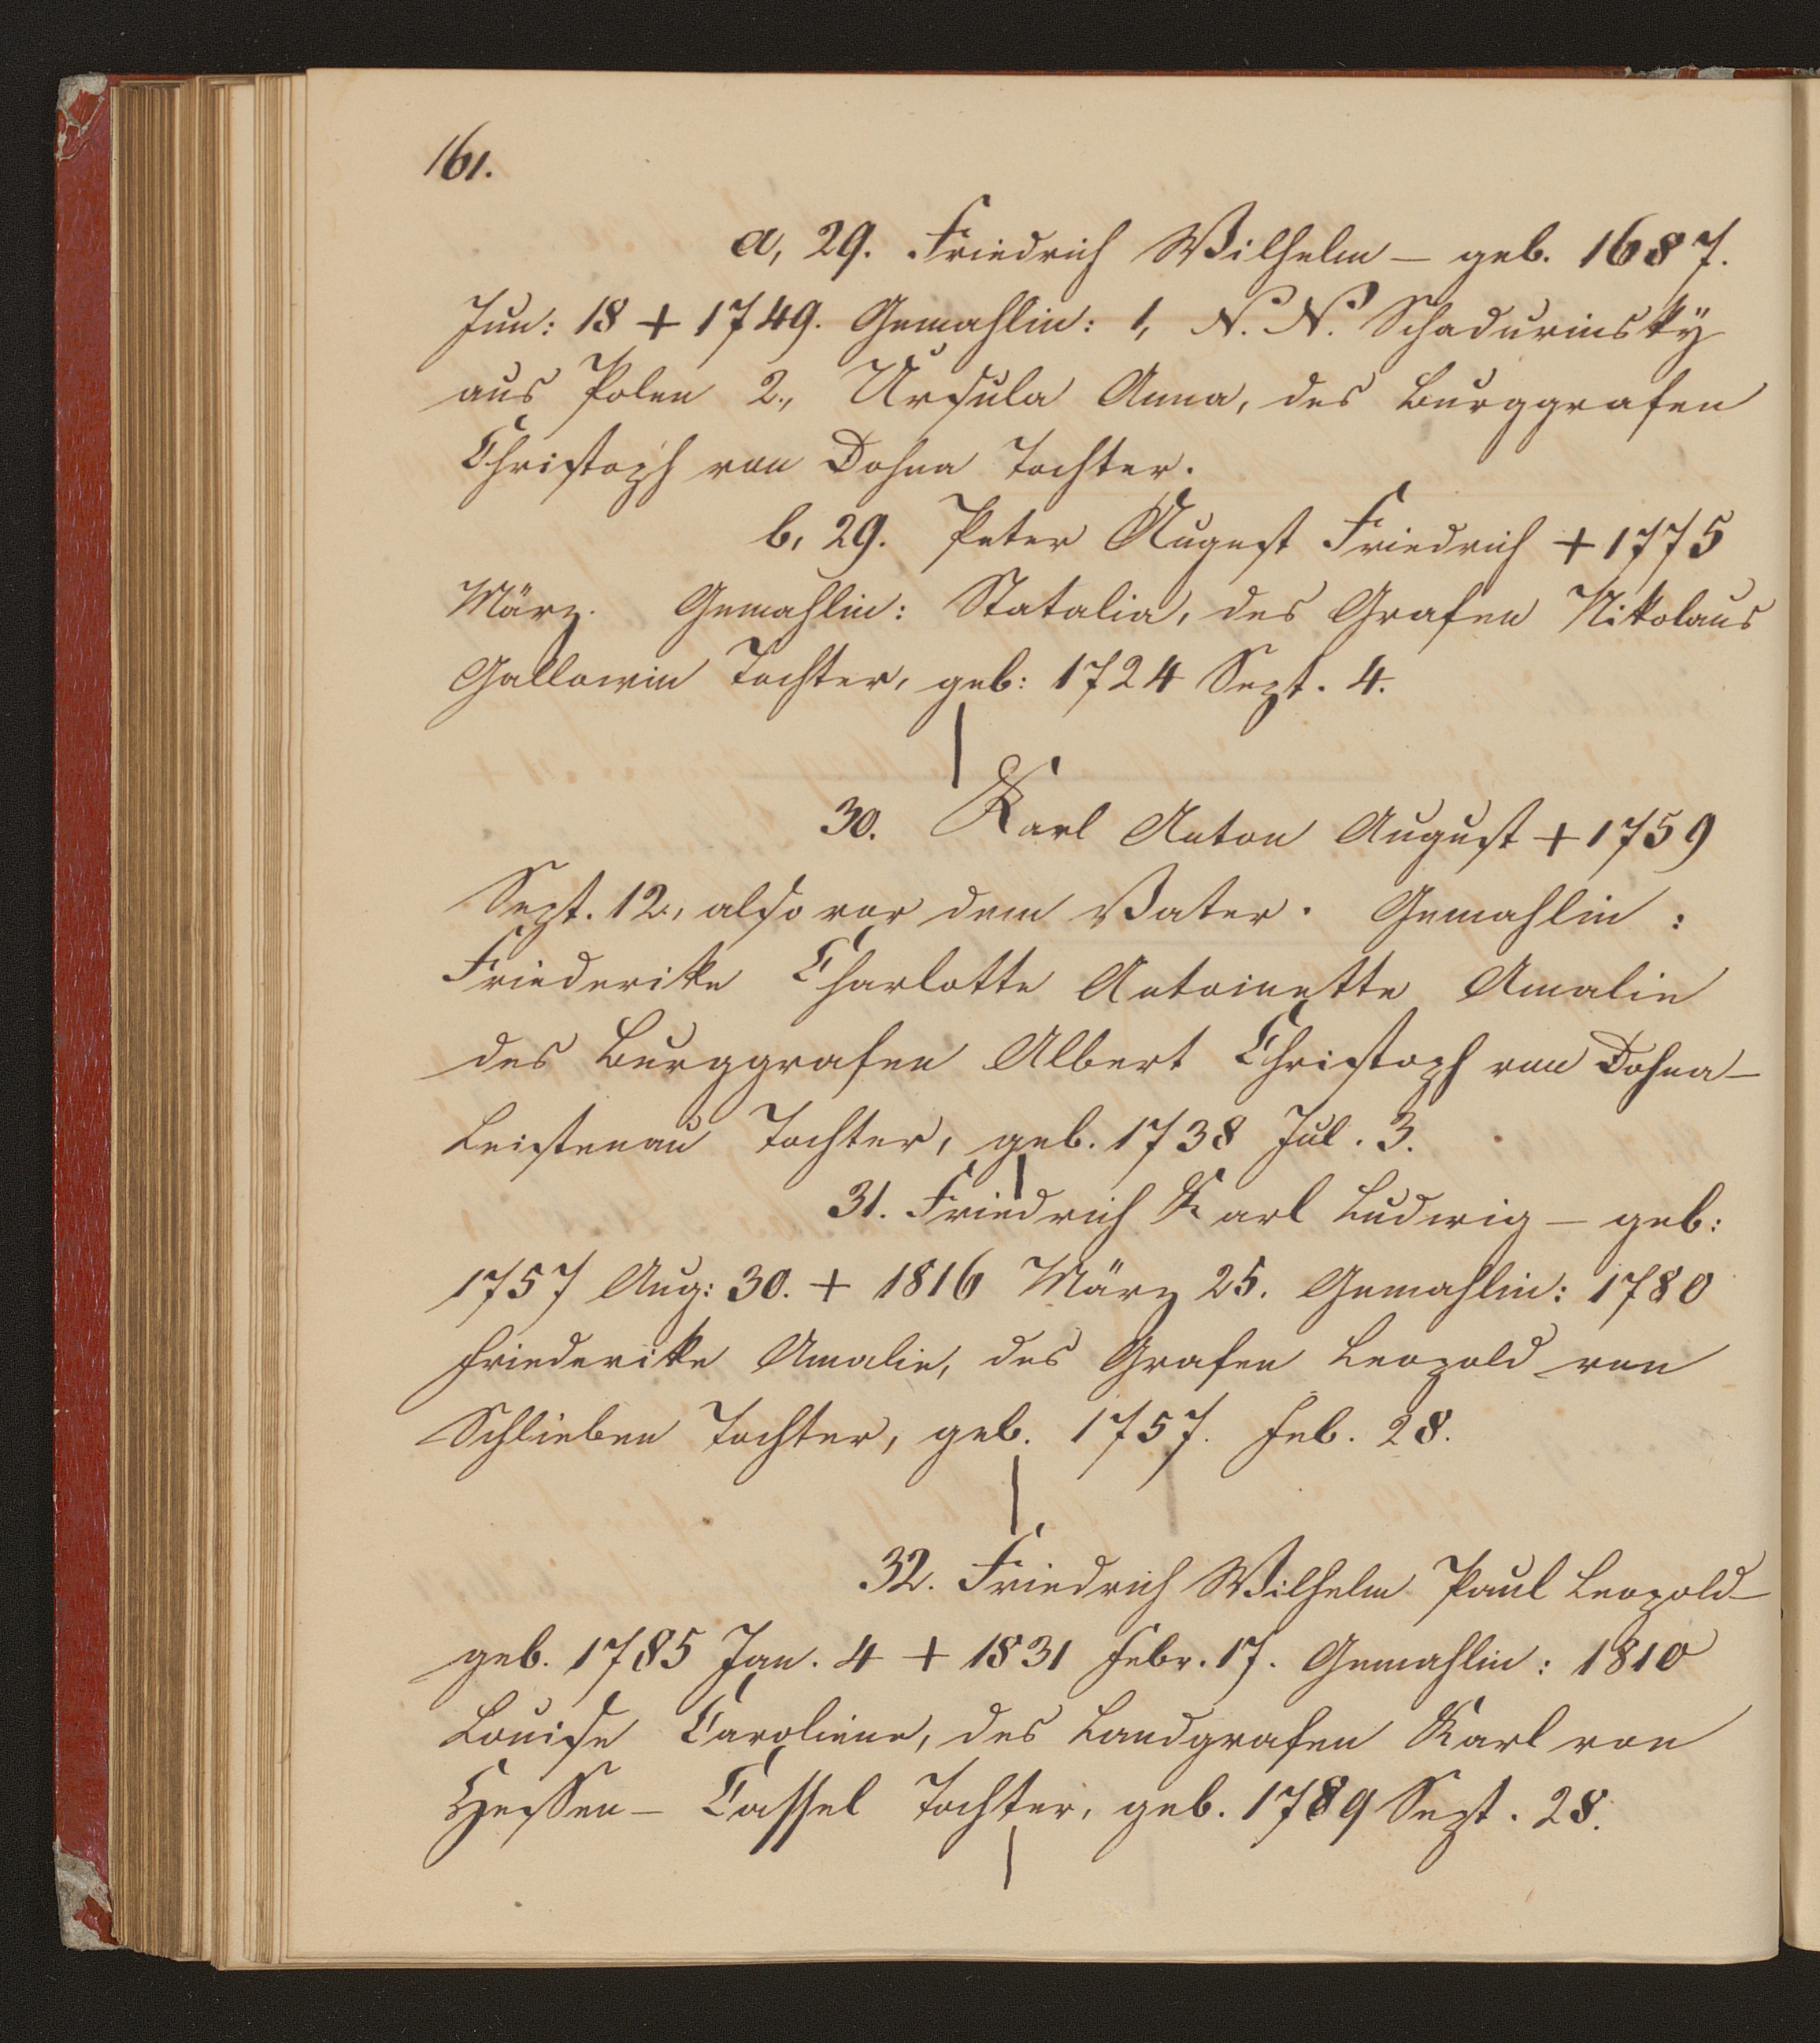 161.
a, 29. Friedrich Wilhelm – geb. 1687.
Jun: 18 + 1749. Gemahlin: 1, N. N. Schadurinsky
aus Polen 2., Ursula Anna, des Burggrafen
Christoph von Dohna Tochter.
b, 29. Peter August Friedrich + 1775
März. Gemahlin: Statalia, des Grafen Nikolaus
Gallowin Tochter, geb: 1724 Sept. 4.
30. Karl Anton August + 1759
Sept. 12., also vor dem Vater. Gemahlin:
Friederike Charlotte Antoinette Amalie
des Burggrafen Albert Christoph von Dohna–
Leistenau Tochter, geb. 1738 Jul. 3.
31. Friedrich Karl Ludwig – geb:
1757 Aug: 30. + 1816 März 25. Gemahlin: 1780
Friederike Amalie, des Grafen Leopold von
Schlieben Tochter, geb. 1757. Feb. 28.
32. Friedrich Wilhelm Paul Leopold–
geb. 1785 Jan. 4 + 1831 Febr. 17. Gemahlin: 1810
Louise Caroline, des Landgrafen Karl von
Hessen– Cassel Tochter, geb. 1789 Sept. 28.